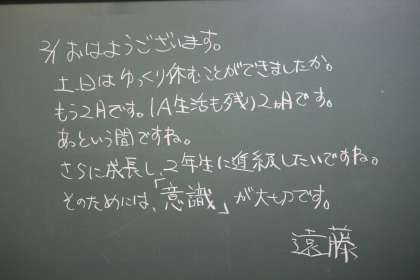 2/1 おはようございます。
土日はゆっくり休むことができましたか。
もう2月です。1A生活も残り2ヵ月です。
あっという間ですね。
さらに成長し、2年生に進級したいですね。
そのためには、「意識」が大切です。
遠藤